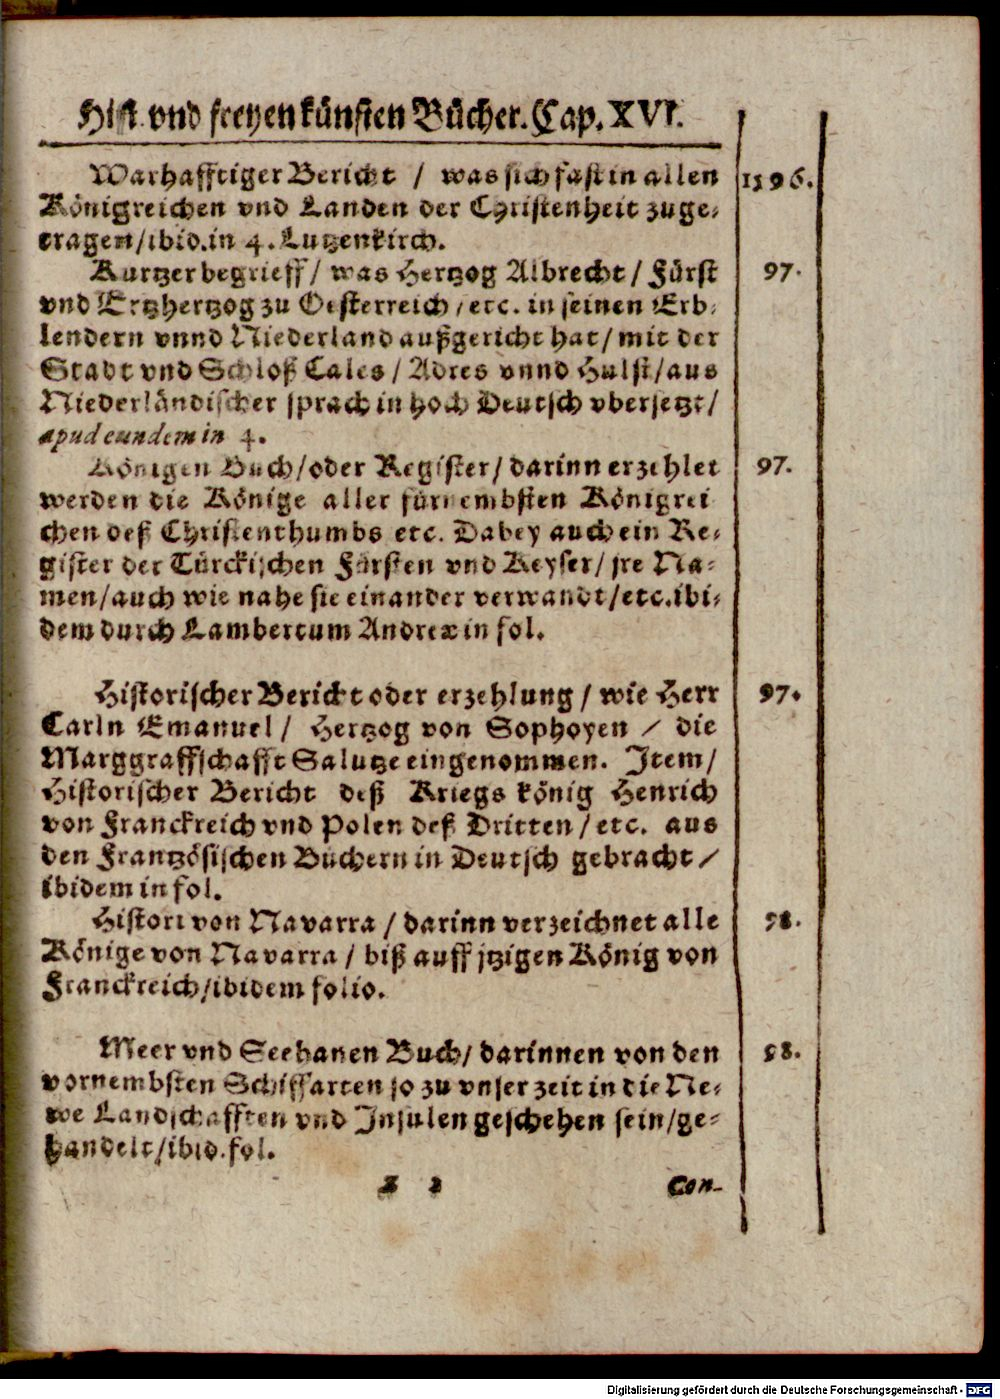 Hist. vnd freyen künsten Bücher. Cap. XVI.
Warhafftiger Bericht / was sich fast in allen 1596.
Königreichen vnd Landen der Christenheit zuge-
tragen/ibid. in 4. Lutzenkirch.
Kurtzer begrieff/ was Hertzog Albrecht/ Fürst 97.
vnd Ertzhertzog zu Oesterreich / etc. in seinen Erb-
lendern vnnd Niederland außgericht hat/ mit der
Stadt vnd Schloß Cales/ Adres vnnd Hulst/aus
Niederländischer sprach in hoch Deutsch vbersetzt/
apud eundem in 4.
Königen Buch/oder Register/ darinn erzehlet 97.
werden die Könige aller fürnembsten Königrei
chen deß Christenthumbs etc. Dabey auch ein Re-
gister der Türckischen Fürsten vnd Keyser/ jre Na-
men/auch wie nahe sie einander verwandt/etc.ibi-
dem durch Lambertum Andreæ in fol.
Historischer Bericht oder erzehlung / wie Herr 97.
Carln Emanuel/ Hertzog von Sophoyen / die
Marggraffschafft Salutze eingenommen. Item/
Historischer Bericht deß Kriegs könig Henrich
von Franckreich vnd Polen deß Dritten / etc. aus
den Frantzösischen Büchern in Deutsch gebracht /
ibidem in fol.
Histori von Navarra / darinn verzeichnet alle 98.
Könige von Navarra / biß auff jtzigen König von
Franckreich/ibidem folio.
Meer vnd Seehanen Buch/ darinnen von den 98.
vornembsten Schiffarten so zu vnser zeit in die Ne-
we Landschafften vnd Insulen geschehen sein/ge-
handelt/ibid. fol.
Z 2 Con-
Digitalisierung gefördert durch die Deutsche Forschungsgemeinschaft - DFG